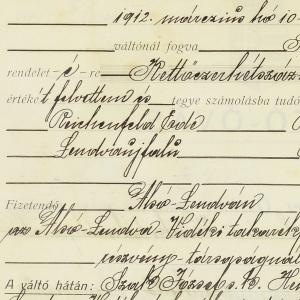 1912. márczius hó 10-
váltónál fogva
rendelet-é-re Kettőezerhétszáz
értéket felvettem és tegye számolásba tudó
Reichenfeld Ede
Lendvaujfalu
Fizetendő Alsó-Lendván
az Alsó-Lendva-Vidéki takaréki
részvény-társaságnál
A váltó hátán: Szafl József s. k. He